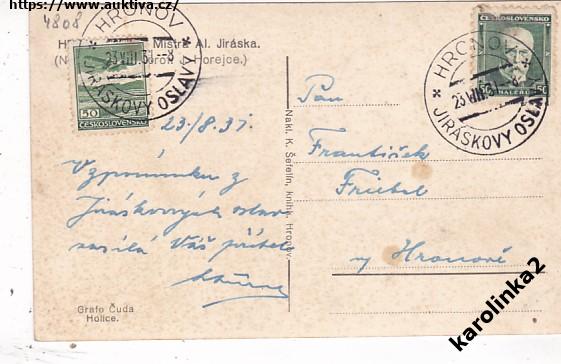 https://www.auktiva.cz/
4808
HRONOV
23.VIII.31.-8
JIRÁSKOVY OSLAVY
Mistra Al. Jiráska.
Horejce.)
50
ČESKOSLOVENSKO
ČESKOSLOVENSKO
50 HALÉŘŮ 50
HRONOV
23.VIII.31
JIRÁSKOVY OSLAVY
23/8.31.
Vzpomínku z
Jiráskových oslav
zasílá Váš přítel
Nakl. K. Šefelín, knihk. Hronov.
Pan
František
Frictel
v Hronově
Grafo Čuda
Holice.
karolinka2